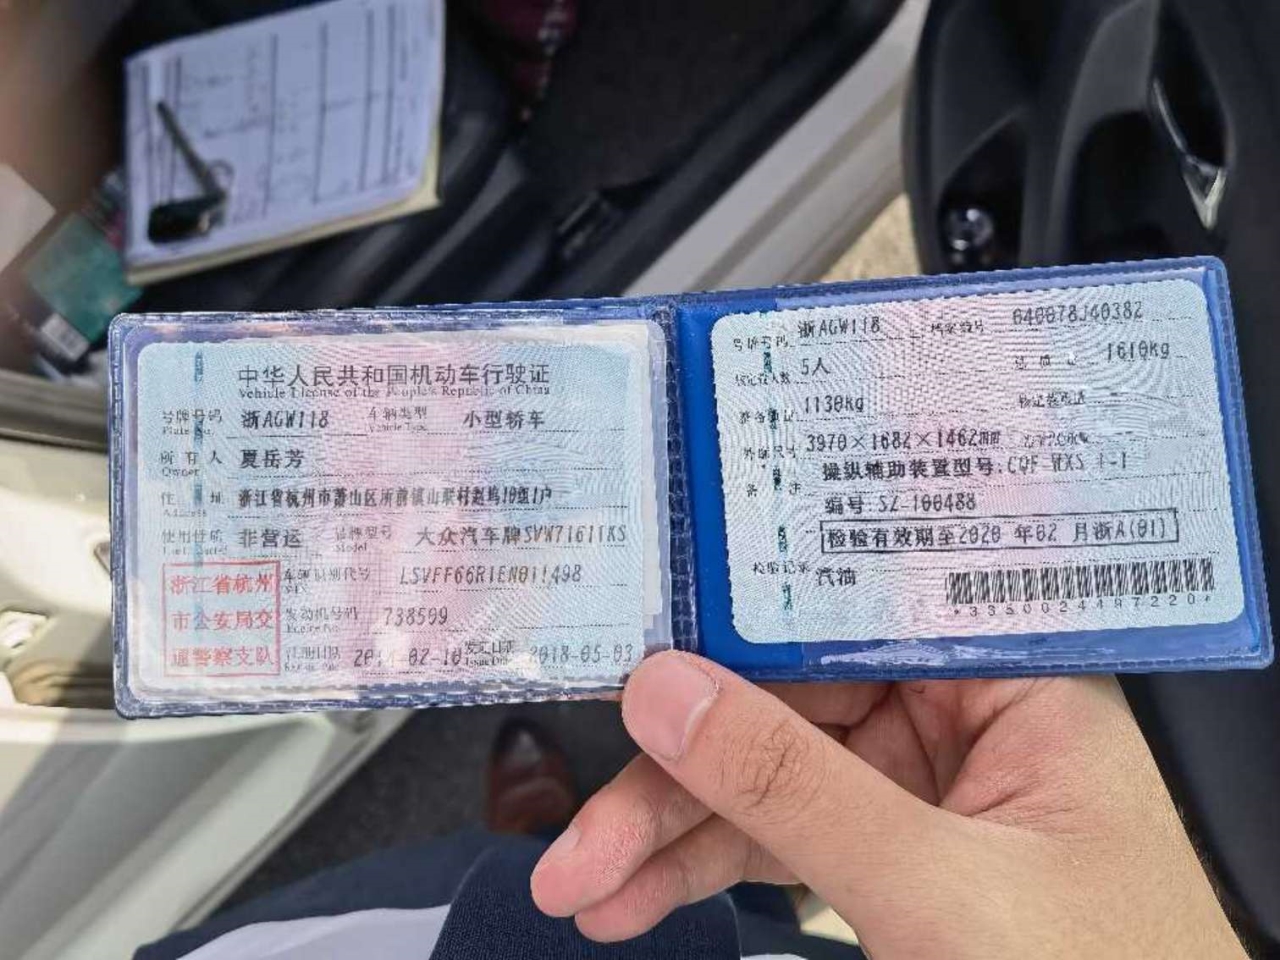 中华人民共和国机动车行驶证
Vehicle License of the People's Republic of China
号牌号码 浙AGW118 车辆类型 小型轿车
Plate No. Vehicle Type
所有人 夏岳芳
Owner
住 址 浙江省杭州市萧山区所前镇山联村赵坞10组1户
Address
使用性质 非营运 品牌型号 大众汽车牌SVW71611KS
Model
浙江省杭州
市公安局交
通警察支队
车辆识别代号 LSVFF66R1EN011498
VIN
发动机号码 738599
Engine No.
注册日期 2014-02-10 发证日期 2018-05-03
Issue Date
号牌号码 浙AGW118 档案编号 040078J40382
核定载人数 5人 总质量 1610kg
整备质量 1130kg 核定载质量
外廓尺寸 3970×1682×1462mm
备 注 操纵辅助装置型号:CQF-WXS 1-1
编号:SZ-100488
检验有效期至2020 年02 月浙A(01)
检验记录 汽油
*3350024497220*